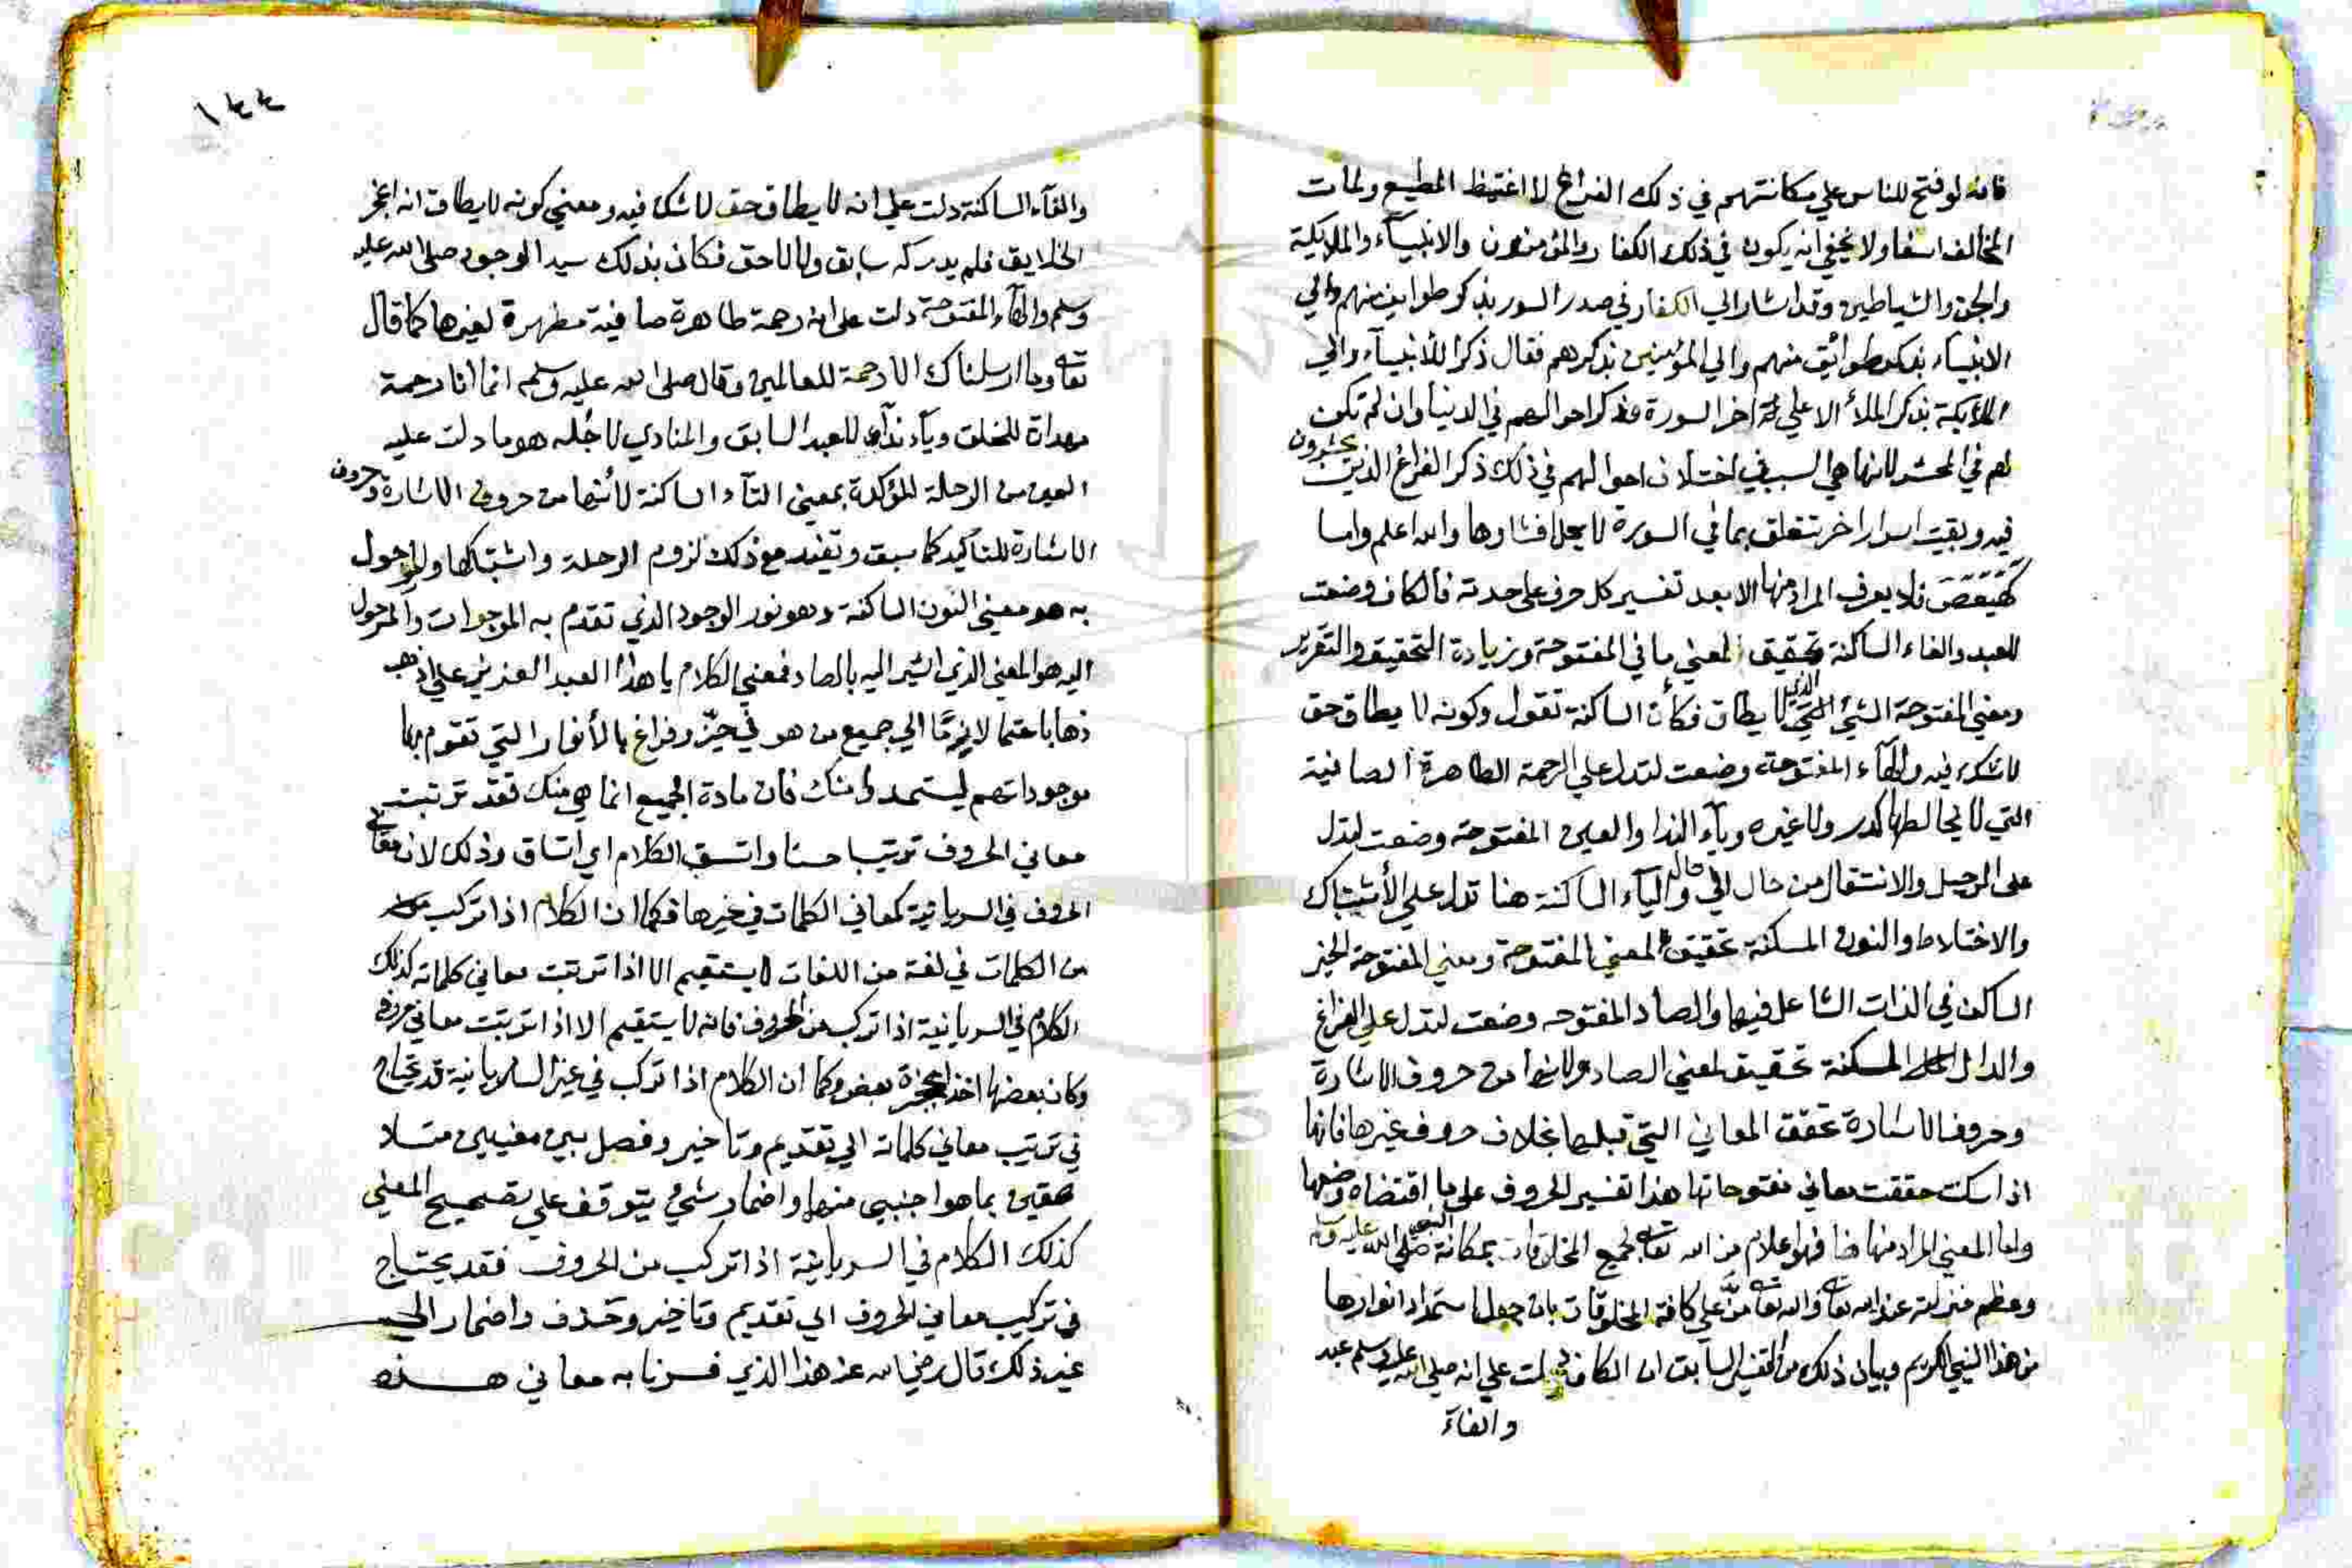 فانه لو فتح للناس علي مكانتهم في ذلك الفراغ لا اغتبط المطيع ولمات
المخالف اسفا ولا يخفي انه يكون في ذلك الكفار والمؤمنون والانبيآء والملايكة
والجن والشياطين وقد اشار الي الكفار في صدر السور بذكر طوايف منهم والي
الانبيآء بذكر طوائق منهم والي المؤمنين بذكرهم فقال ذكرا للأنبيآء والي
الملايكة بذكر الملأ الاعلي اخر السورة وذكر احوالهم في الدنيا وان لم تكن
لهم في المحشر لانها هي السبب في اختلاف احوالهم في ذلك ذكر الفراغ الذين يحشرون
فيه وبقيت اسرار اخر تتعلق بما في السورة لا يحل افشاوها والله اعلم واما
كهيعص فلا يعرف المراد منها الا بعد تفسير كل حرف علي حدته فالكاف وضعت
للعبد والفاء الساكنة تحقيق لمعني ما في المفتوحة وزيادة التحقيق والتقرير
ومعني المفتوحة الشئ الذي لا يطاق فكأن الساكنة تقول وكونه لا يطاق حق
لا شك فيه والهآء المفتوحة وضعت لتدل علي الرحمة الطاهرة الصافية
التي لا يخالطها كدر ولا غيره ويآء النداء والعين المفتوحة وضعت لتدل
علي الرحيل والانتقال من حال الي حال والياء الساكنة هنا تدل علي الأشتباك
والاختلاط والنون المسكنة تحقيق لمعني المفتوحة ومعني المفتوحة الخير
الساكن في الذات الشاعل فيها والصاد المفتوحه وضعت لتدل علي الفراغ
والدال المسكنة تحقيق لمعني الصاد ولانها من حروف الاشارة
وحروف الاشارة تحقق المعاني التي قبلها بخلاف حروف غيرها فانها
اذا سكنت حققت معاني مفتوحاتها هذا تفسير الحروف علي ما اقتضاه وضعها
واما المعني المراد منها هنا فهو اعلام من الله تعالي لجميع المخلوقات بمكانة النبي صلي الله عليه وسلم
وعظم منزلته عند الله تعالي وانه تعالي منّ علي كافة المخلوقات بان جعل استمداد انوارها
من هذا النبي الكريم وبيان ذلك من التفسير السابق ان الكاف دلت علي انه صلي الله عليه وسلم عبد
والفاء
١٤٤
والفآء الساكنة دلت علي انه لا يطاق حق لا شك فيه ومعني كونه لا يطاق انه اعجز
الخلايق فلم يدركه سابق ولا لاحق فكان بذلك سيد الوجود صلي الله عليه
وسلم والهآء المفتوحة دلت علي انه رحمة طاهرة صافية مطهرة لغيرها كما قال
تعالي وما ارسلناك الا رحمة للعالمين وقال صلي الله عليه وسلم انما انا رحمة
مهداة للخلق ويآء ندآء للعبد السابق والمنادي لاجله هو ما دلت عليه
العين من الرحلة المؤكدة بمعني التآء الساكنة لأنها من حروف الاشارة وحروف
الاشارة للتاكيد كما سبق وتفيد مع ذلك لزوم الرحلة واشتباكها والمرحول
به هو معني النون الساكنة وهو نور الوجود الذي تقدم به الموجوات والمرحول
اليه هو المعني الذي اشير اليه بالصاد فمعني الكلام يا هذا العبد العزيز علي اذهب
ذهابا حتما لازمًا الي جميع من هو في حيّز وفراغ بالأنوار التي تقوم بها
موجوداتهم ليستمدوا منك فان مادة الجميع انما هي منك فقد ترتبت
معاني الحروف ترتيبا حسنا واتسق الكلام اي اتساق وذلك لان معاني
الحروف في السريانية كمعاني الكلمات في غيرها فكما ان الكلام اذا تركب
من الكلمات في لغة من اللغات لا يستقيم الا اذا ترتبت معاني كلماته كذلك
الكلام في السريانية اذا تركب من الحروف فانه لا يستقيم الا اذا ترتبت معاني حروفه
وكان بعضها اخذا بحجزة بعض وكما ان الكلام اذا تركب في غير السريانية قد يحتاج
في ترتيب معاني كلماته الي تقديم وتاخير وفصل بين معنيين متلا
صقين بما هو اجنبي منها واضمار شئ يتوقف علي تصحيح المعني
كذلك الكلام في السريانية اذا تركب من الحروف فقد يحتاج
في تركيب معاني الحروف الي تقديم وتاخير وحذف واضمار الي
غير ذلك قال رضي الله عنه هذا الذي فسرنا به معاني هذه